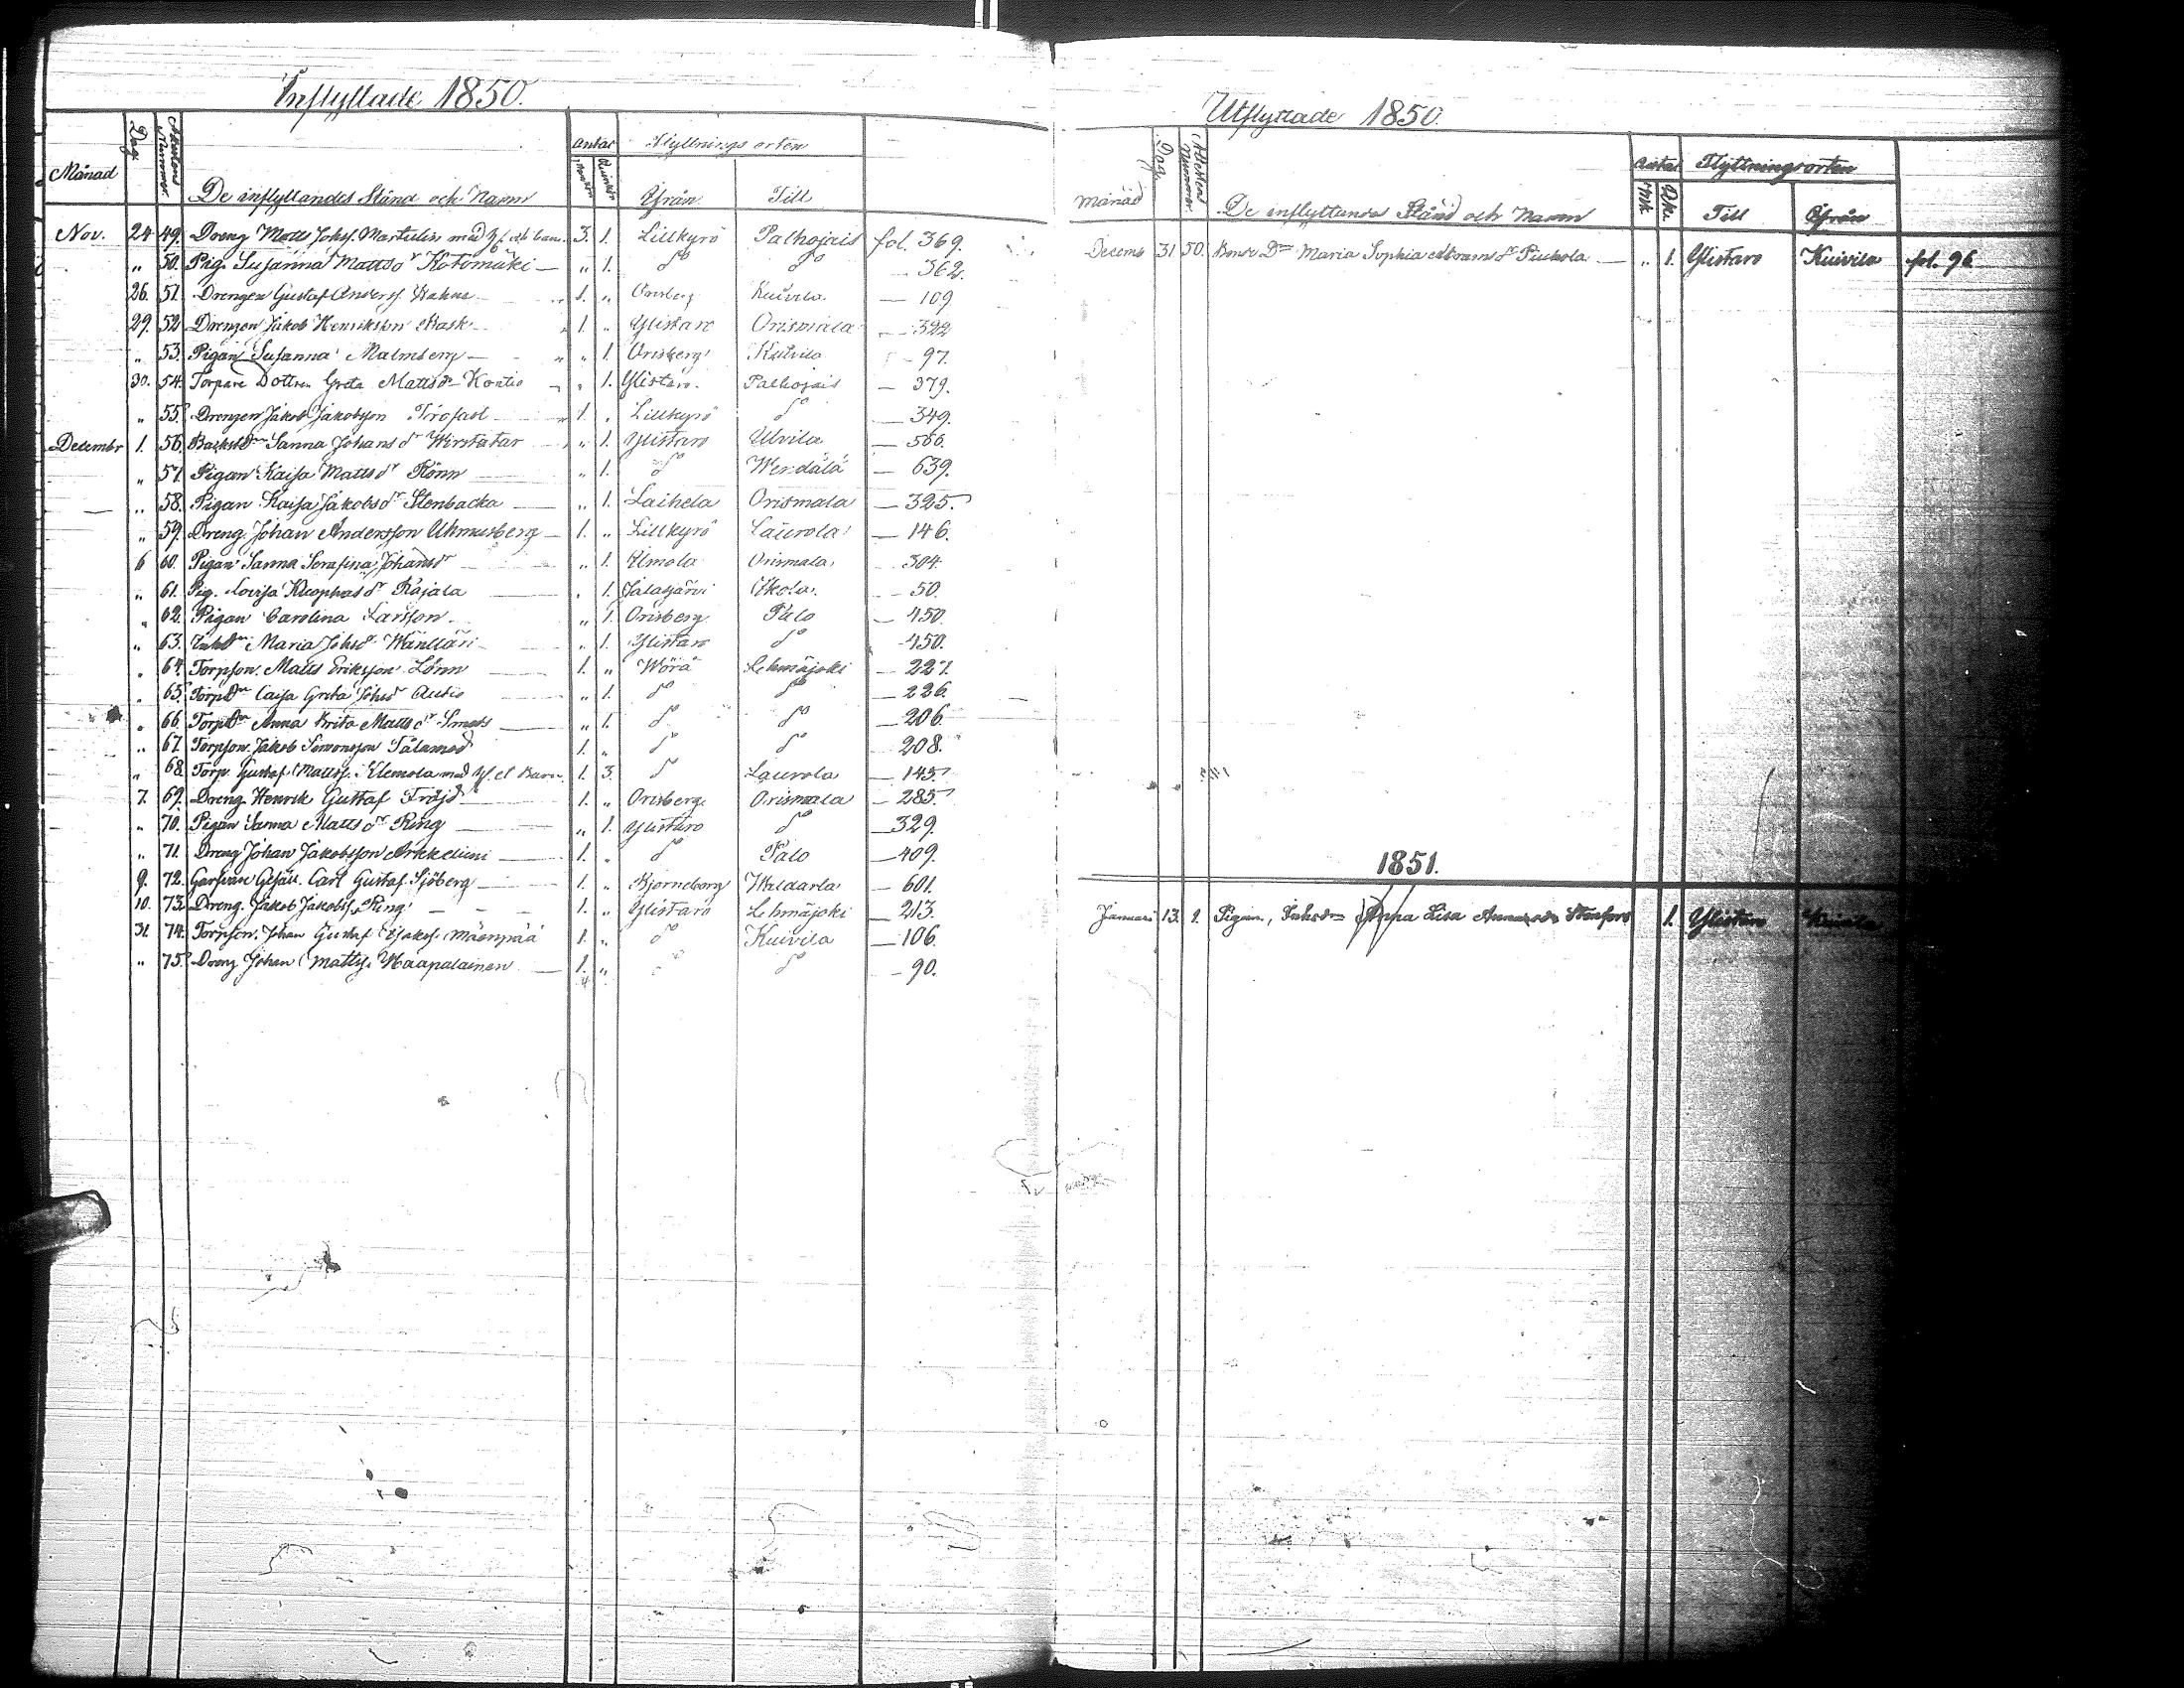 Inflyttade 1850.
Månad Dag Attestens Nummer De inflyttandes Stånd och Namn Antal Mankön Qvinkön Flyttnings orten Ifrån Till
Nov. 24 49. Dreng Matts Johss. Martulin med H. och barn 3. 1. Lillkyrö Palhojais fol. 369.
" 50. Pig. Susanna Mattsdr Kotomäki — " 1. do do — 362.
26. 51. Drengen Gustaf Anderss. 1. " Orisberg Kuivila — 109
29. 52 Drengen Jakob Henriksson Rask 1. " Ylistaro Orismala — 322
" 53. Pigan Susanna Malmberg — " 1. Orisberg Kuivila — 97.
30. 54. Torpare Dottren Greta Mattsdr Kontio " 1. Ylistaro. Palhojais — 379.
" 55. Drengen Jakob Jakobsson Trofast 1. " Lillkyrö do — 349.
Decembr 1. 56. Sanna Johansdr Wirstatar " 1. Ylistaro Ulvila — 566.
" 57. Pigan Kaisa Mattsdr Rönn " 1. do Werdälä — 639.
" 58. Pigan Kaisa Jakobsdr Stenbacka " 1. Laihela Orismala — 325.
" 59. Dreng. Johan Andersson 1. " Lillkyrö Laurola — 146.
6 60. Pigan Sanna Serafina Johansdr " 1. Ilmola Orismala 304
" 61. Pig. Lovisa Kleophasdr Rajala " 1. Jalasjärvi Ikola — 50.
" 62. Pigan Carolina Larsson " 1. Orisberg Palo — 450
" 63. Maria Johsdr " 1. Ylistaro do — 450.
" 64. Torpson. Matts Eriksson Lönn 1. " Wörå Lehmäjoki — 227.
" 65. Torpdn Caisa Greta Johsdr Autio " 1. do do — 226.
" 66. Torpdn Anna Brita Mattsdr Smeds " 1. do do — 206
" 67. Torpson. Jakob Simonsson Tålamod 1. " do do 208.
" 68. Torp. Gustaf Mattss. Klemola med H. et Barn. 1. 3. do Laurola — 145.
7. 69. Dreng Henrik Gustaf Fröjd 1. " Orisberg Orismala — 285.
" 70. Pigan Sanna Mattsdr Ring " 1. Ylistaro do — 329.
" 71. Dreng Johan Jakobsson 1. " do Palo — 409.
9. 72. Garfvare Gesäll. Carl Gustaf Sjöberg 1. " Björneborg — 601.
10. 73. Dreng. Jakob Jakobss. Ring 1. " Ylistaro Lehmäjoki — 213.
31. 74. Torpson. Johan Gustaf Mäenpää 1. " do Kuivila — 106.
" 75. Dreng Johan Mattss. Haapalainen 1. " do do — 90.
Utflyttade 1850.
Månad Dag Attestens Nummer De inflyttandes Stånd och Namn Antal Mk. Qk. Flyttningsorten Till Ifrån
Decemb 31. 50. Bonde Dn Maria Sophia Abramsdr — " 1. Ylistaro Kuivila fol. 96
1851.
Januari 13. 1. Pigan, Anna Lisa 1. Ylistaro Kuivila